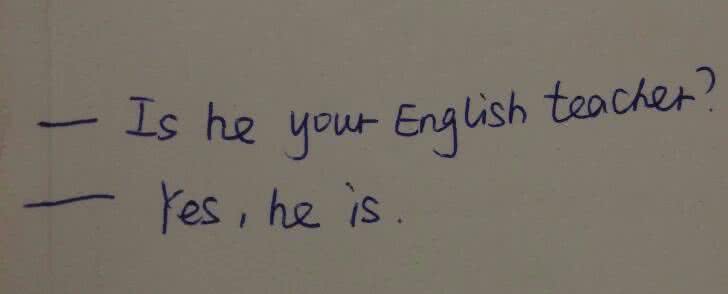 — Is he your English teacher?
— Yes, he is.